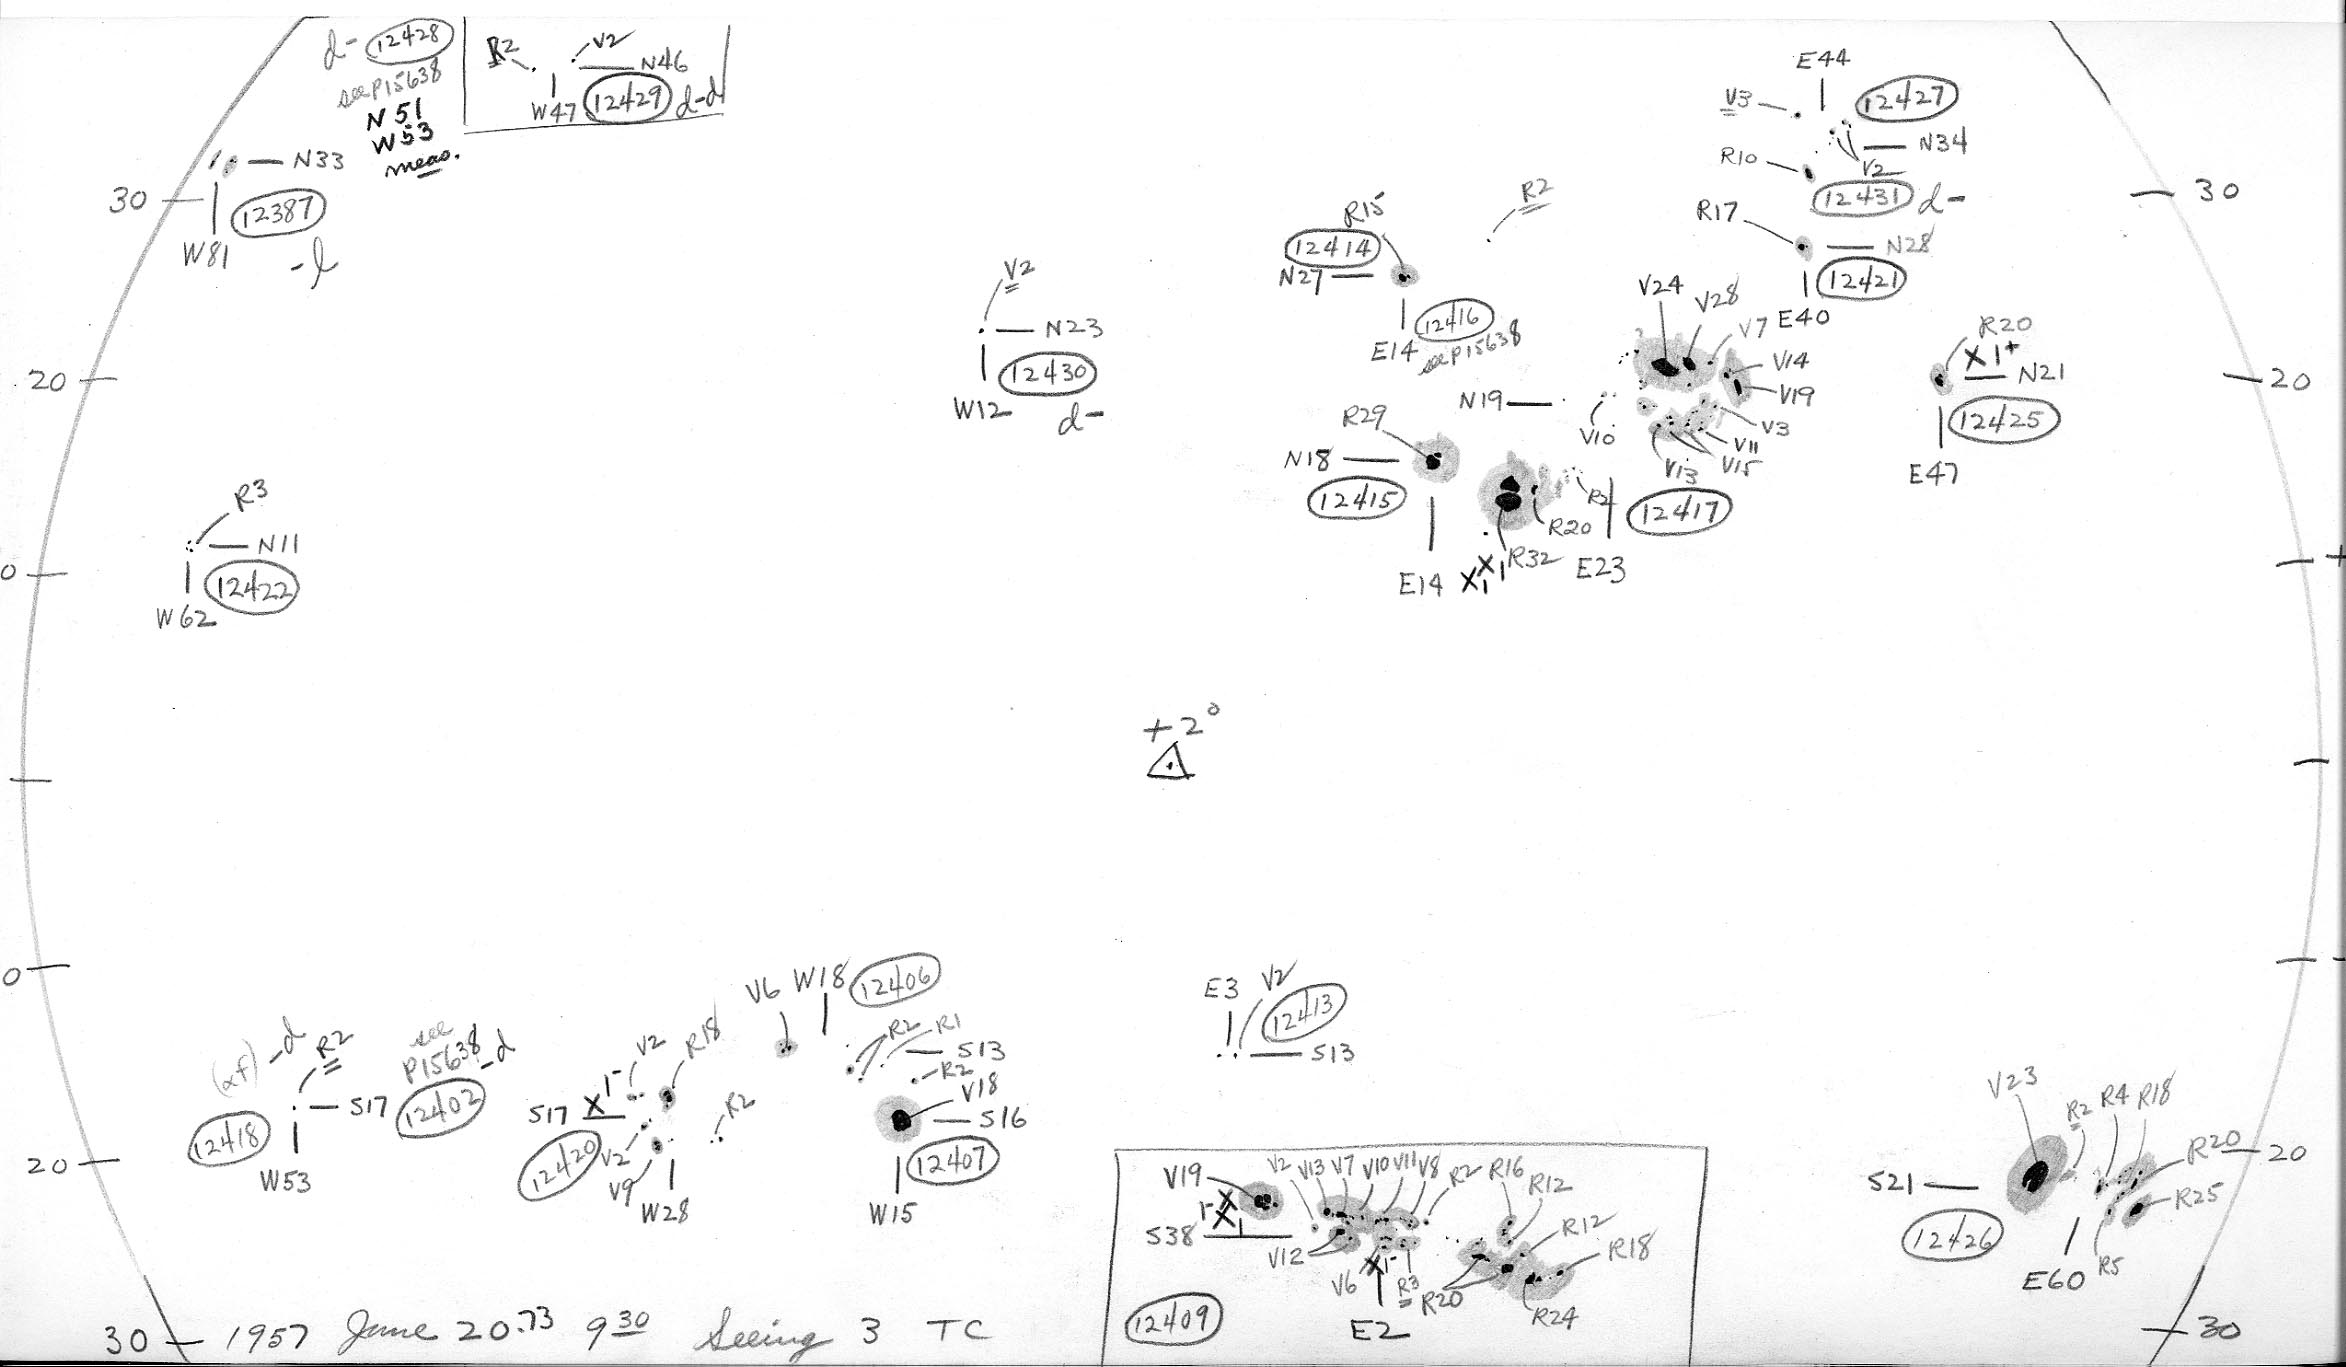 d- 12428
see P15638
N 51
W 53
meas.
R2
V2
N46
W47 12429 d-d
N33
30
12387
W81
-l
V2
N23
20
12430
W12
d-
R3
N11
0
12422
W62
E44
V3
12427
N34
R10
V2
12431 d-
30
R2
R15
12414
N27
R17
N28
12421
E14
12416
see P15638
V24
V28
V7
E40
V14
V19
R20
X1+
N21
20
12425
E47
N19
V10
V3
V11
V15
V13
R29
N18
12415
R2
12417
R20
R32
E14
X1
X1
E23
+2°
0
V6
W18
12406
R2
R1
S13
R2
V18
S16
12407
W15
E3
V2
12413
S13
(αf) -d
R2
see
P15638 -d
S17
12402
12418
20
W53
V2
R18
X1-
S17
R2
12420
V2
V9
W28
V19
V2
V13
V7
V10
V11
V8
R2
R16
R12
X1-
X1
S38
V12
R12
R18
V6
X1-
R3
R20
R24
12409
E2
V23
R2
R4
R18
R20
20
S21
R25
12426
E60
R5
30
30
1957 June 20.73 9 30 Seeing 3 TC